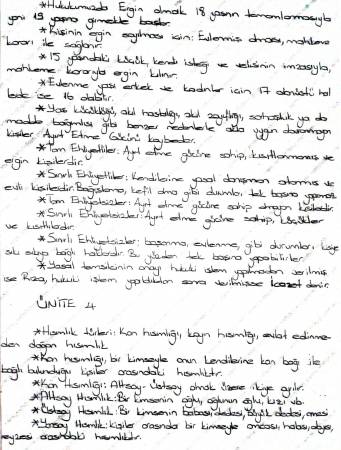 *Hukukumuzda Ergin olmak 18 yaşının tamamlanmasıyla
yani 19 yaşına girmekle başlar.
*Kişinin ergin sayılması için: Evlenmiş olması, mahkeme
kararı ile sağlanır.
*15 yaşındaki küçük, kendi isteği ve velisinin imzasıyla,
mahkeme kararıyla ergin kılınır.
*Evlenme yaşı erkek ve kadınlar için 17 olağanüstü hal
lede ise 16 dabilir.
*Yaş küçüklüğü, akıl hastalığı, akıl zayıflığı, sarhoşluk ya da
madde bağımlısı gibi benzer nedenlerle akla uygun davranmayan
kişiler Ayırt Etme Gücünü kaybeder.
*Tam Ehliyetliler: Ayırt etme gücüne sahip, kısıtlanmamış ve
ergin kişilerdir.
*Sınırlı Ehliyetliler: Kendilerine yasal danışman atanmış ve
evli kişilerdir. Bağışlama, kefil olma gibi durumlar tek başına yapamaz
*Tam Ehliyetsizler: Ayırt etme gücüne sahip olmayan kişilerdir.
*Sınırlı Ehliyetsizler: Ayırt etme gücüne sahip, küçükler
ve kısıtlılardır.
*Sınırlı Ehliyetsizler: boşanma, evlenme, gibi durumları kişiye
sıkı sıkıya bağlı haklardır. Bu yüzden tek başına yapabilirler.
*Yasal temsilcinin onayı hukuki işlem yapılmadan verilmiş
ise Rıza, hukuki işlem yapıldıktan sonra verilmişse İcazet denir.
ÜNİTE 4
*Hısımlık türleri: Kan hısımlığı, kayın hısımlığı, evlat edinme-
den doğan hısımlık
*Kan hısımlığı, bir kimseyle onun kendilerine kan bağı ile
bağlı bulunduğu kişiler arasındaki hısımlıktır.
*Kan hısımlığı: Altsoy-üstsoy olmak üzere ikiye ayrılır.
*Altsoy Hısımlık: Bir kimsenin oğlu, oğlunun oğlu, kızı vb.
*Üstsoy Hısımlık: Bir kimsenin babası, dedesi, büyük dedesi, annesi
*Yansoy Hısımlık: kişiler arasında bir kimseyle amcası, halası, dayısı,
teyzesi arasındaki hısımlıktır.